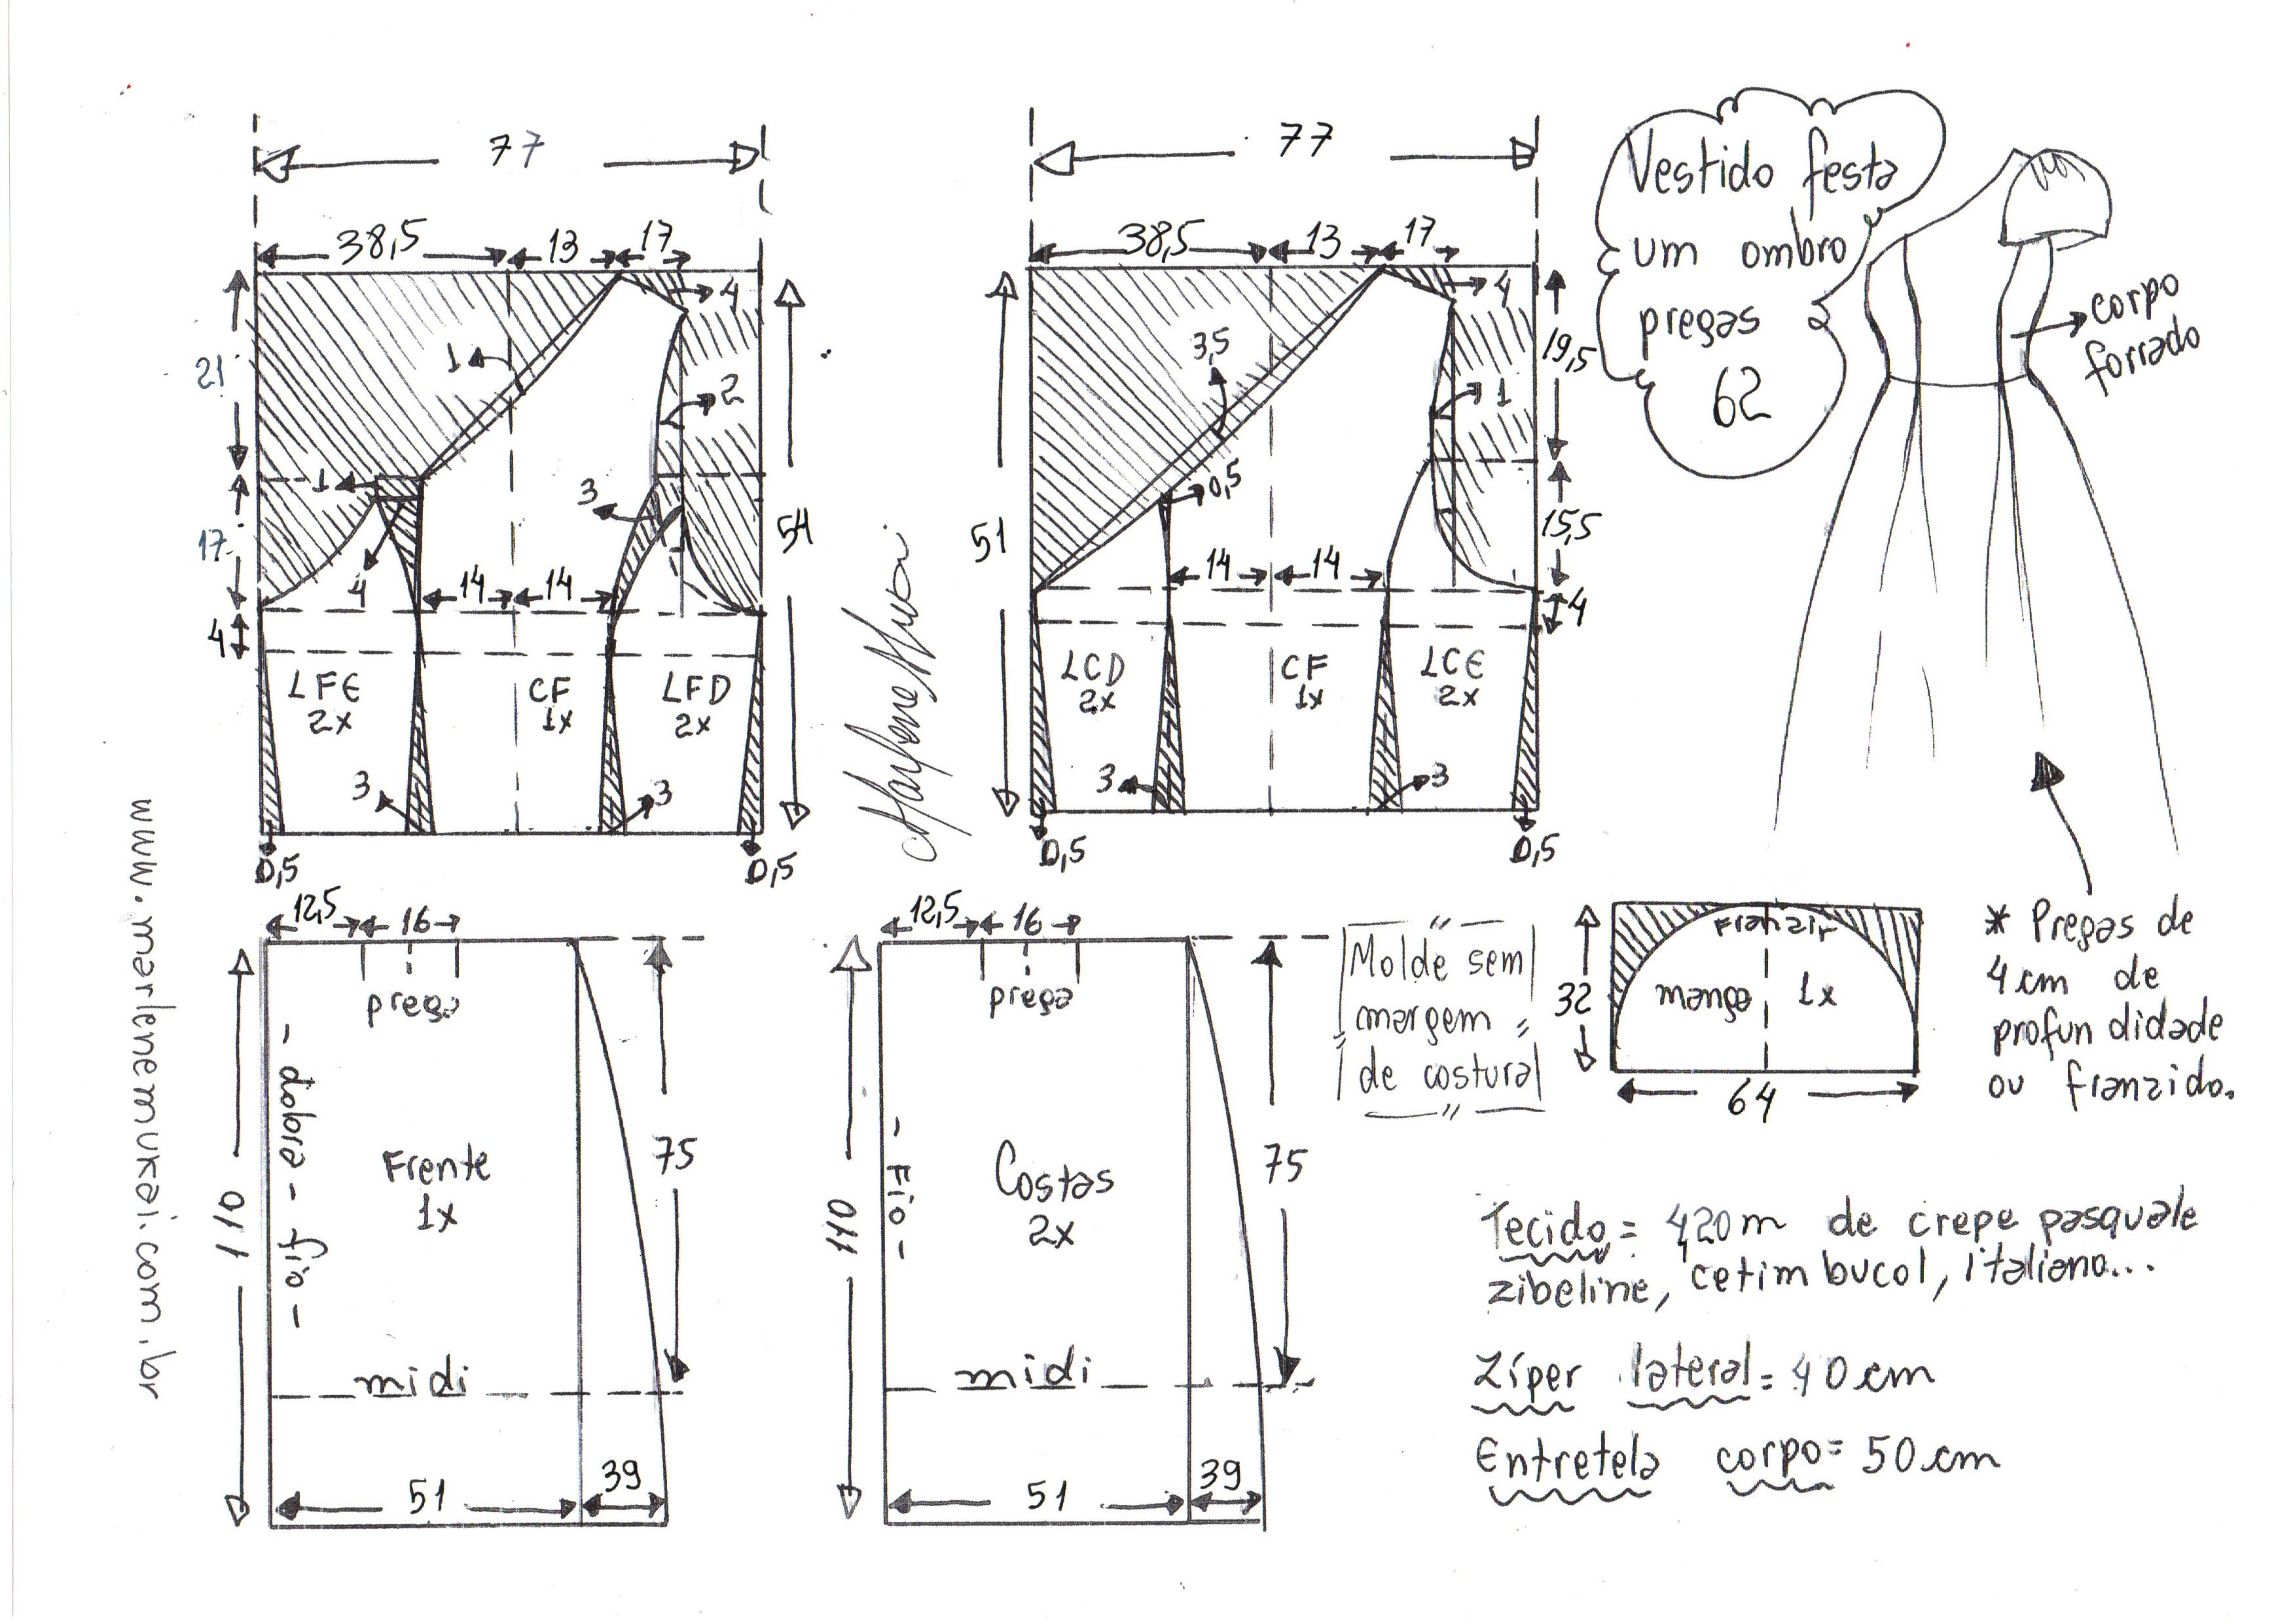 77
38,5 13 17
21
17
4
1
4
2
1
3
4
14 14
54
LFE
2x
CF
1x
LFD
2x
3
3
0,5
0,5
77
38,5 13 17
51
3,5
4
1
0,5
19,5
15,5
4
14 14
LCD
2x
CF
1x
LCE
2x
3
3
0,5
0,5
Vestido festa
um ombro
pregas
62
corpo
forrado
www.marlenemukai.com.br
12,5 16
prega
110
- dobra - fio -
Frente
1x
75
midi
51
39
12,5 16
prega
110
- Fio -
Costas
2x
75
midi
51
39
Molde sem
margem
de costura
32
Franzir
manga 1x
64
* Pregas de
4cm de
profundidade
ou franzido.
Tecido = 4,20m de crepe pasquale
zibeline, cetim bucol, italiano...
Zíper lateral = 40cm
Entretela corpo = 50cm